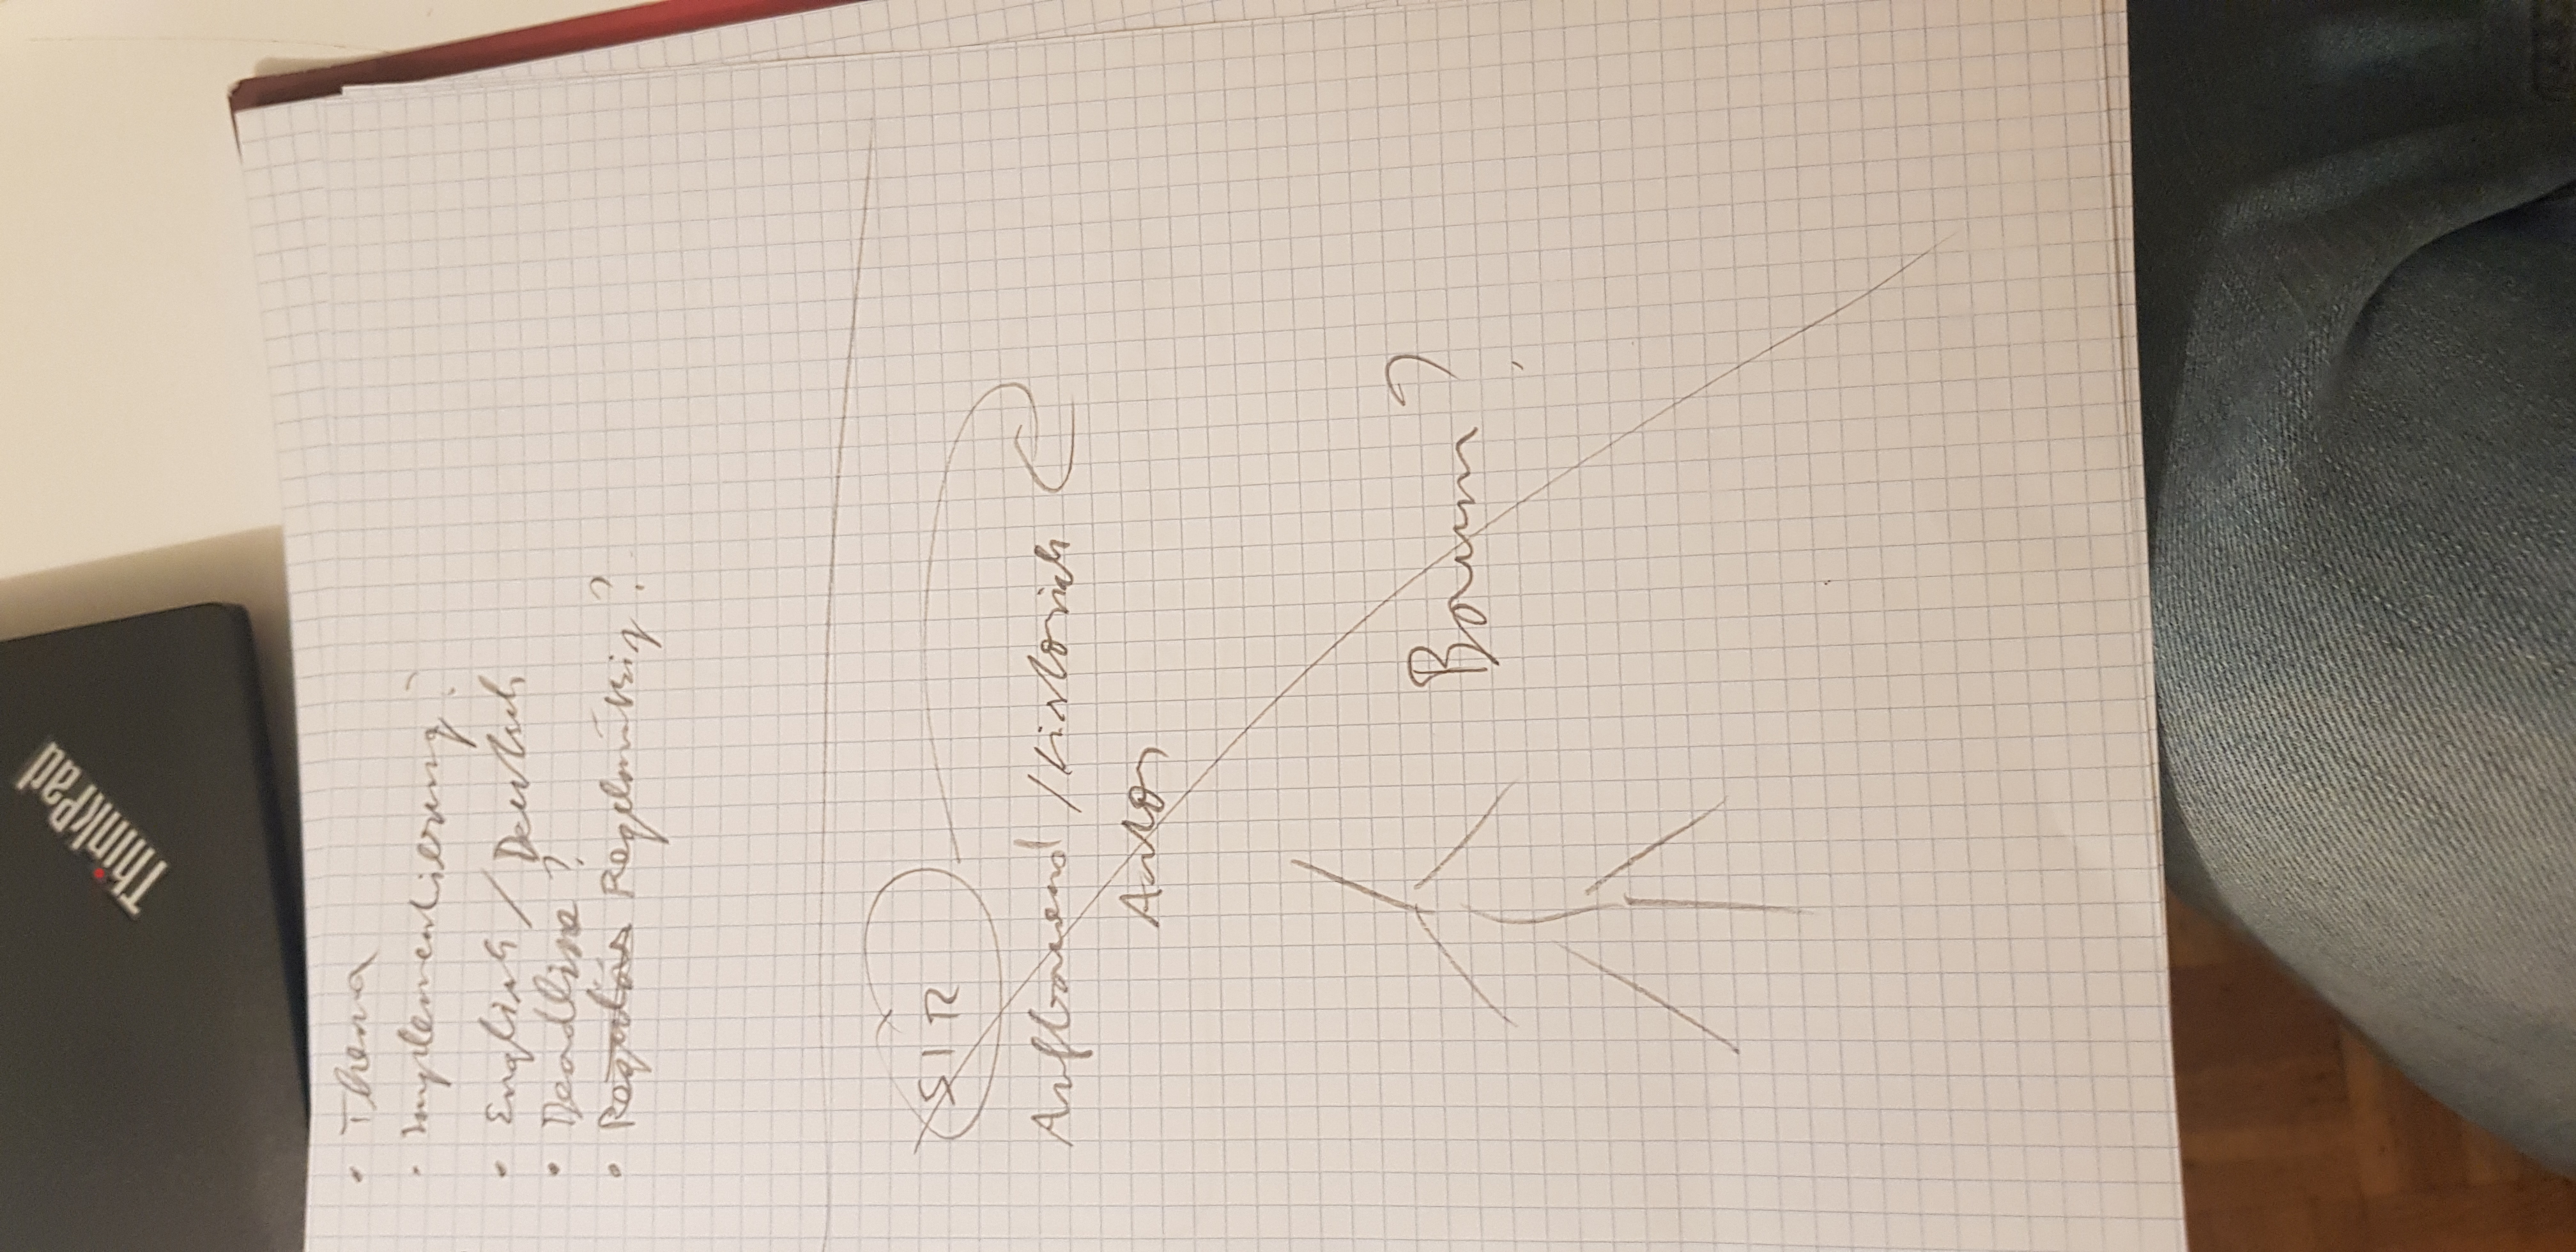 ThinkPad
• Thema
• Implementierung?
• Englisch / Deutsch
• Deadline?
• Regulär Regelmäßig?
SIR
Aufbauend / historisch
Autor
Baum?